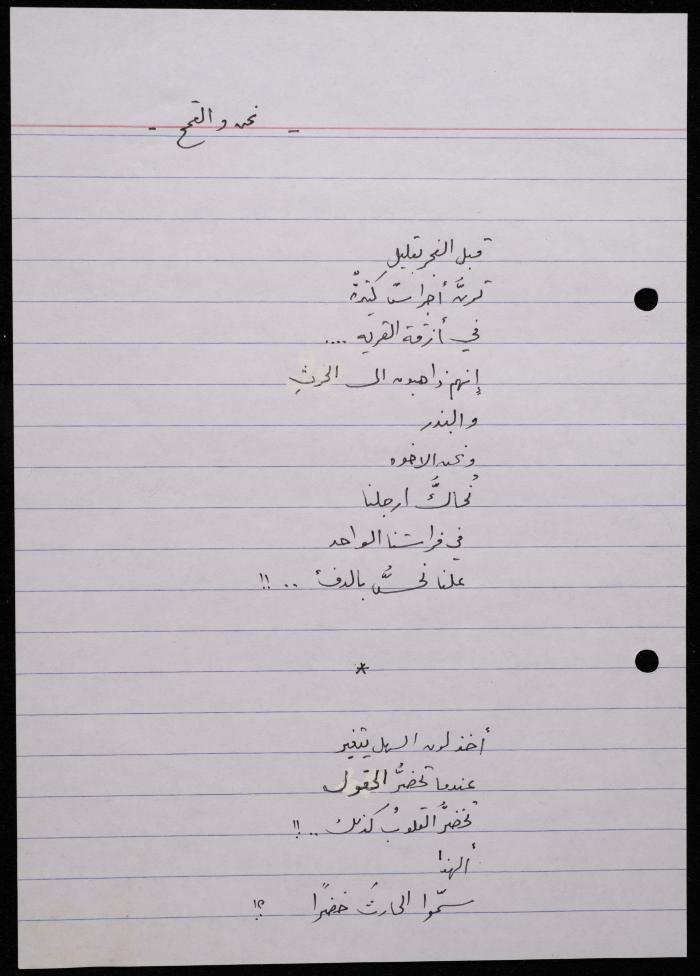 - نحن و القمح -
قبل الفجر بقليل
ترنُّ أجراسٌ كثيرةٌ
في أزقة القريه ....
إنهم ذاهبون الى الحرثِ
والبذر
ونحن الاخوه
نُحاكُّ ارجلنا
في فراشنا الواحد
علنا نحسُّ بالدفء .. !!
*
أخذ لون السهل يتغير
عندما تخضرُّ الحقول
تخضرُّ القلوبُ كذلك .. !!
ألهذا
سمّوا الحارثَ خضرًا ؟!